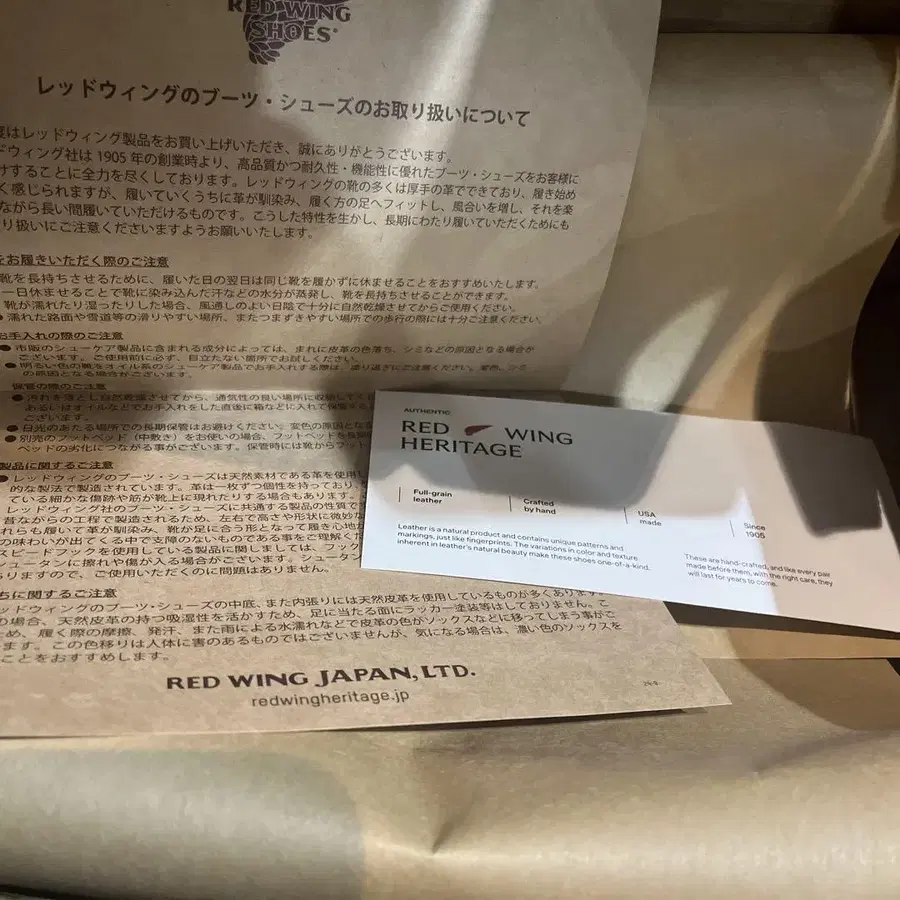 RED WING
SHOES®
レッドウィングのブーツ・シューズのお取り扱いについて
度はレッドウィング製品をお買い上げいただき、誠にありがとうございます。
ドウィング社は 1905 年の創業時より、高品質かつ耐久性・機能性に優れたブーツ・シューズをお客様に
けすることに全力を尽くしております。レッドウィングの靴の多くは厚手の革でできており、履き始め
く感じられますが、履いていくうちに革が馴染み、履く方の足へフィットし、風合いを増し、それを楽
ながら長い間履いていただけるものです。こうした特性を生かし、長期にわたり履いていただくためにも
り扱いにご注意くださいますようお願いいたします。
をお履きいただく際のご注意
靴を長持ちさせるために、履いた日の翌日は同じ靴を履かずに休ませることをおすすめいたします。
一日休ませることで靴に染み込んだ汗などの水分が蒸発し、靴を長持ちさせることができます。
靴が濡れたり湿ったりした場合、風通しのよい日陰で十分に自然乾燥させてからご使用ください。
● 濡れた路面や雪道等の滑りやすい場所、またつまずきやすい場所での歩行の際には十分ご注意ください。
お手入れの際のご注意
● 市販のシューケア製品に含まれる成分によっては、まれに皮革の色落ち、シミなどの原因となる場合が
ございます。ご使用前に必ず、目立たない箇所でお試しください。
● 明るい色の靴をオイル系のシューケア製品でお手入れする際は、塗り過ぎにご注意ください。変色、シミ
の原因となる場合がございます。
保管の際のご注意
● 汚れを落とし自然乾燥させてから、通気性の良い場所に収納してく
あるいはオイルなどでお手入れをした直後に箱などに入れて保管する
● 日光のあたる場所での長期保管はお避けください。変色の原因とな
● 別売のフットベッド（中敷き）をお使いの場合、フットベッドを長時
ベッドの劣化につながる事がございます。保管時には靴からフット
製品に関するご注意
● レッドウィングのブーツ・シューズは天然素材である革を使用し
的な製法で製造されています。革は一枚ずつ個性を持っており、
ている細かな傷跡や筋が靴上に現れたりする場合もあります。
レッドウィング社のブーツ・シューズに共通する製品の性質で
昔ながらの工程で製造されるため、左右で高さや形状に微妙な
れらも履いて革が馴染み、靴が足に合う形となって履き心地が
の味わいが出てくる中で支障のないものである事をご理解く
スピードフックを使用している製品に関しましては、フック
シュータンに擦れや傷が入る場合がございます。シュータン
りますので、ご使用いただくのに問題はありません。
ちに関するご注意
ッドウィングのブーツ・シューズの中底、また内張りには天然皮革を使用しているものが多くあります
の場合、天然皮革の持つ吸湿性を活かすため、足に当たる面にラッカー塗装等はしておりません。こ
め、履く際の摩擦、発汗、また雨による水濡れなどで皮革の色がソックスなどに移ってしまう事がご
ます。この色移りは人体に害のあるものではございませんが、気になる場合は、濃い色のソックスを
ことをおすすめします。
RED WING JAPAN, LTD.
redwingheritage.jp
AUTHENTIC
RED WING
HERITAGE
Full-grain
leather
Crafted
by hand
USA
made
Since
1905
Leather is a natural product and contains unique patterns and
markings, just like fingerprints. The variations in color and texture
inherent in leather's natural beauty make these shoes one-of-a-kind.
These are hand-crafted, and like every pair
made before them, with the right care, they
will last for years to come.